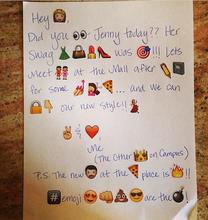 Hey 👩,
Did you 👀 Jenny today?? Her
Swag 👗👠💄👜 was 🎯!!! Lets
Meet 👭 at the Mall after ✏️📓
for some 🔥💃🍕... and we can
🔒👇 our new style!! 🛍
✌️ & ❤️
Me
(The Other 👑 on Campus)
P.S. The new 👨 at the 🍕 place is 🔥!!
# emoji 😊👊🍕💩 are the 💣